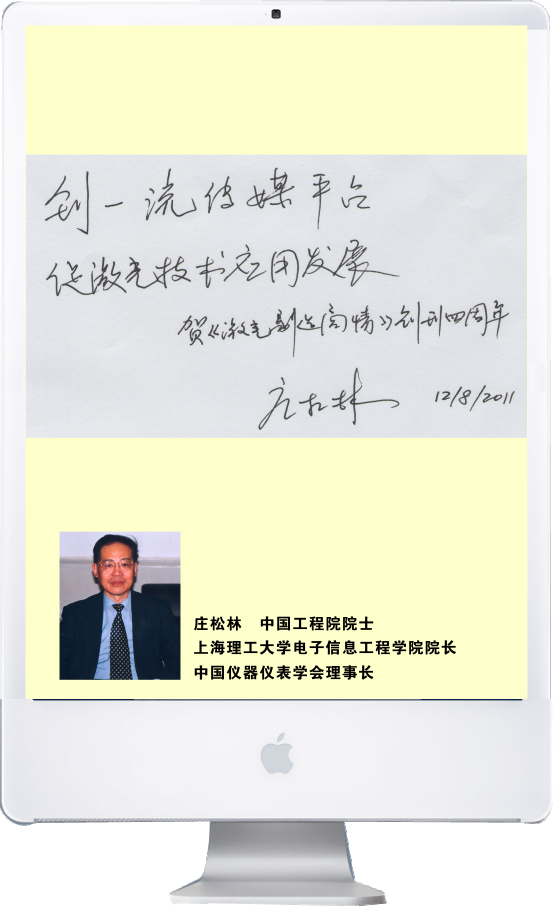 创一流传媒平台
促激光技术应用发展
贺《激光制造商情》创刊四周年
庄松林 12/8/2011
庄松林 中国工程院院士
上海理工大学电子信息工程学院院长
中国仪器仪表学会理事长